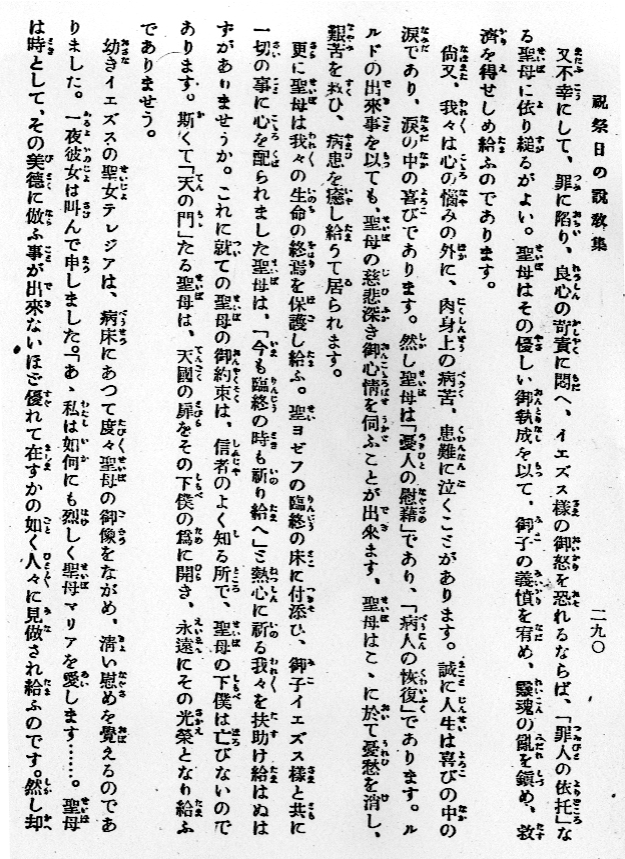 祝祭日の説敎集
二九〇
又不幸にして、罪に陷り、良心の苛責に悶へ、イエズス様の御怒を恐れるならば、「罪人の依托」な
る聖母に依り縋るがよい。聖母はその優しい御執成を以て、御子の義憤を宥め、靈魂の亂を鎭め、救
濟を得せしめ給ふのであります。
尙又、我々は心の惱みの外に、肉身上の病苦、患難に泣くことがあります。誠に人生は喜びの中の
淚であり、淚の中の喜びであります。然し聖母は「憂人の慰藉」であり、「病人の恢復」であります。ル
ルドの出來事を以ても、聖母の慈悲深き御心情を伺ふことが出來ます、聖母はこゝに於て憂愁を消し、
艱苦を救ひ、病患を癒し給うて居られます。
更に聖母は我々の生命の終焉を保護し給ふ。聖ヨゼフの臨終の床に付添ひ、御子イエズス様と共に
一切の事に心を配られました聖母は、「今も臨終の時も祈り給へ」と熱心に祈る我々を扶助け給はぬは
ずがありませうか。これに就ての聖母の御約束は、信者のよく知る所で、聖母の下僕は亡びないので
あります。斯くて「天の門」たる聖母は、天國の扉をその下僕の爲に開き、永遠にその光榮となり給ふ
でありませう。
幼きイエズスの聖女テレジアは、病床にあつて度々聖母の御像をながめ、淸い慰めを覺えるのであ
りました。一夜彼女は叫んで申しました。「あゝ私は如何にも烈しく聖母マリアを愛します……。聖母
は時として、その美德に倣ふ事が出來ないほど優れて在すかの如く人々に見做され給ふのです。然し却